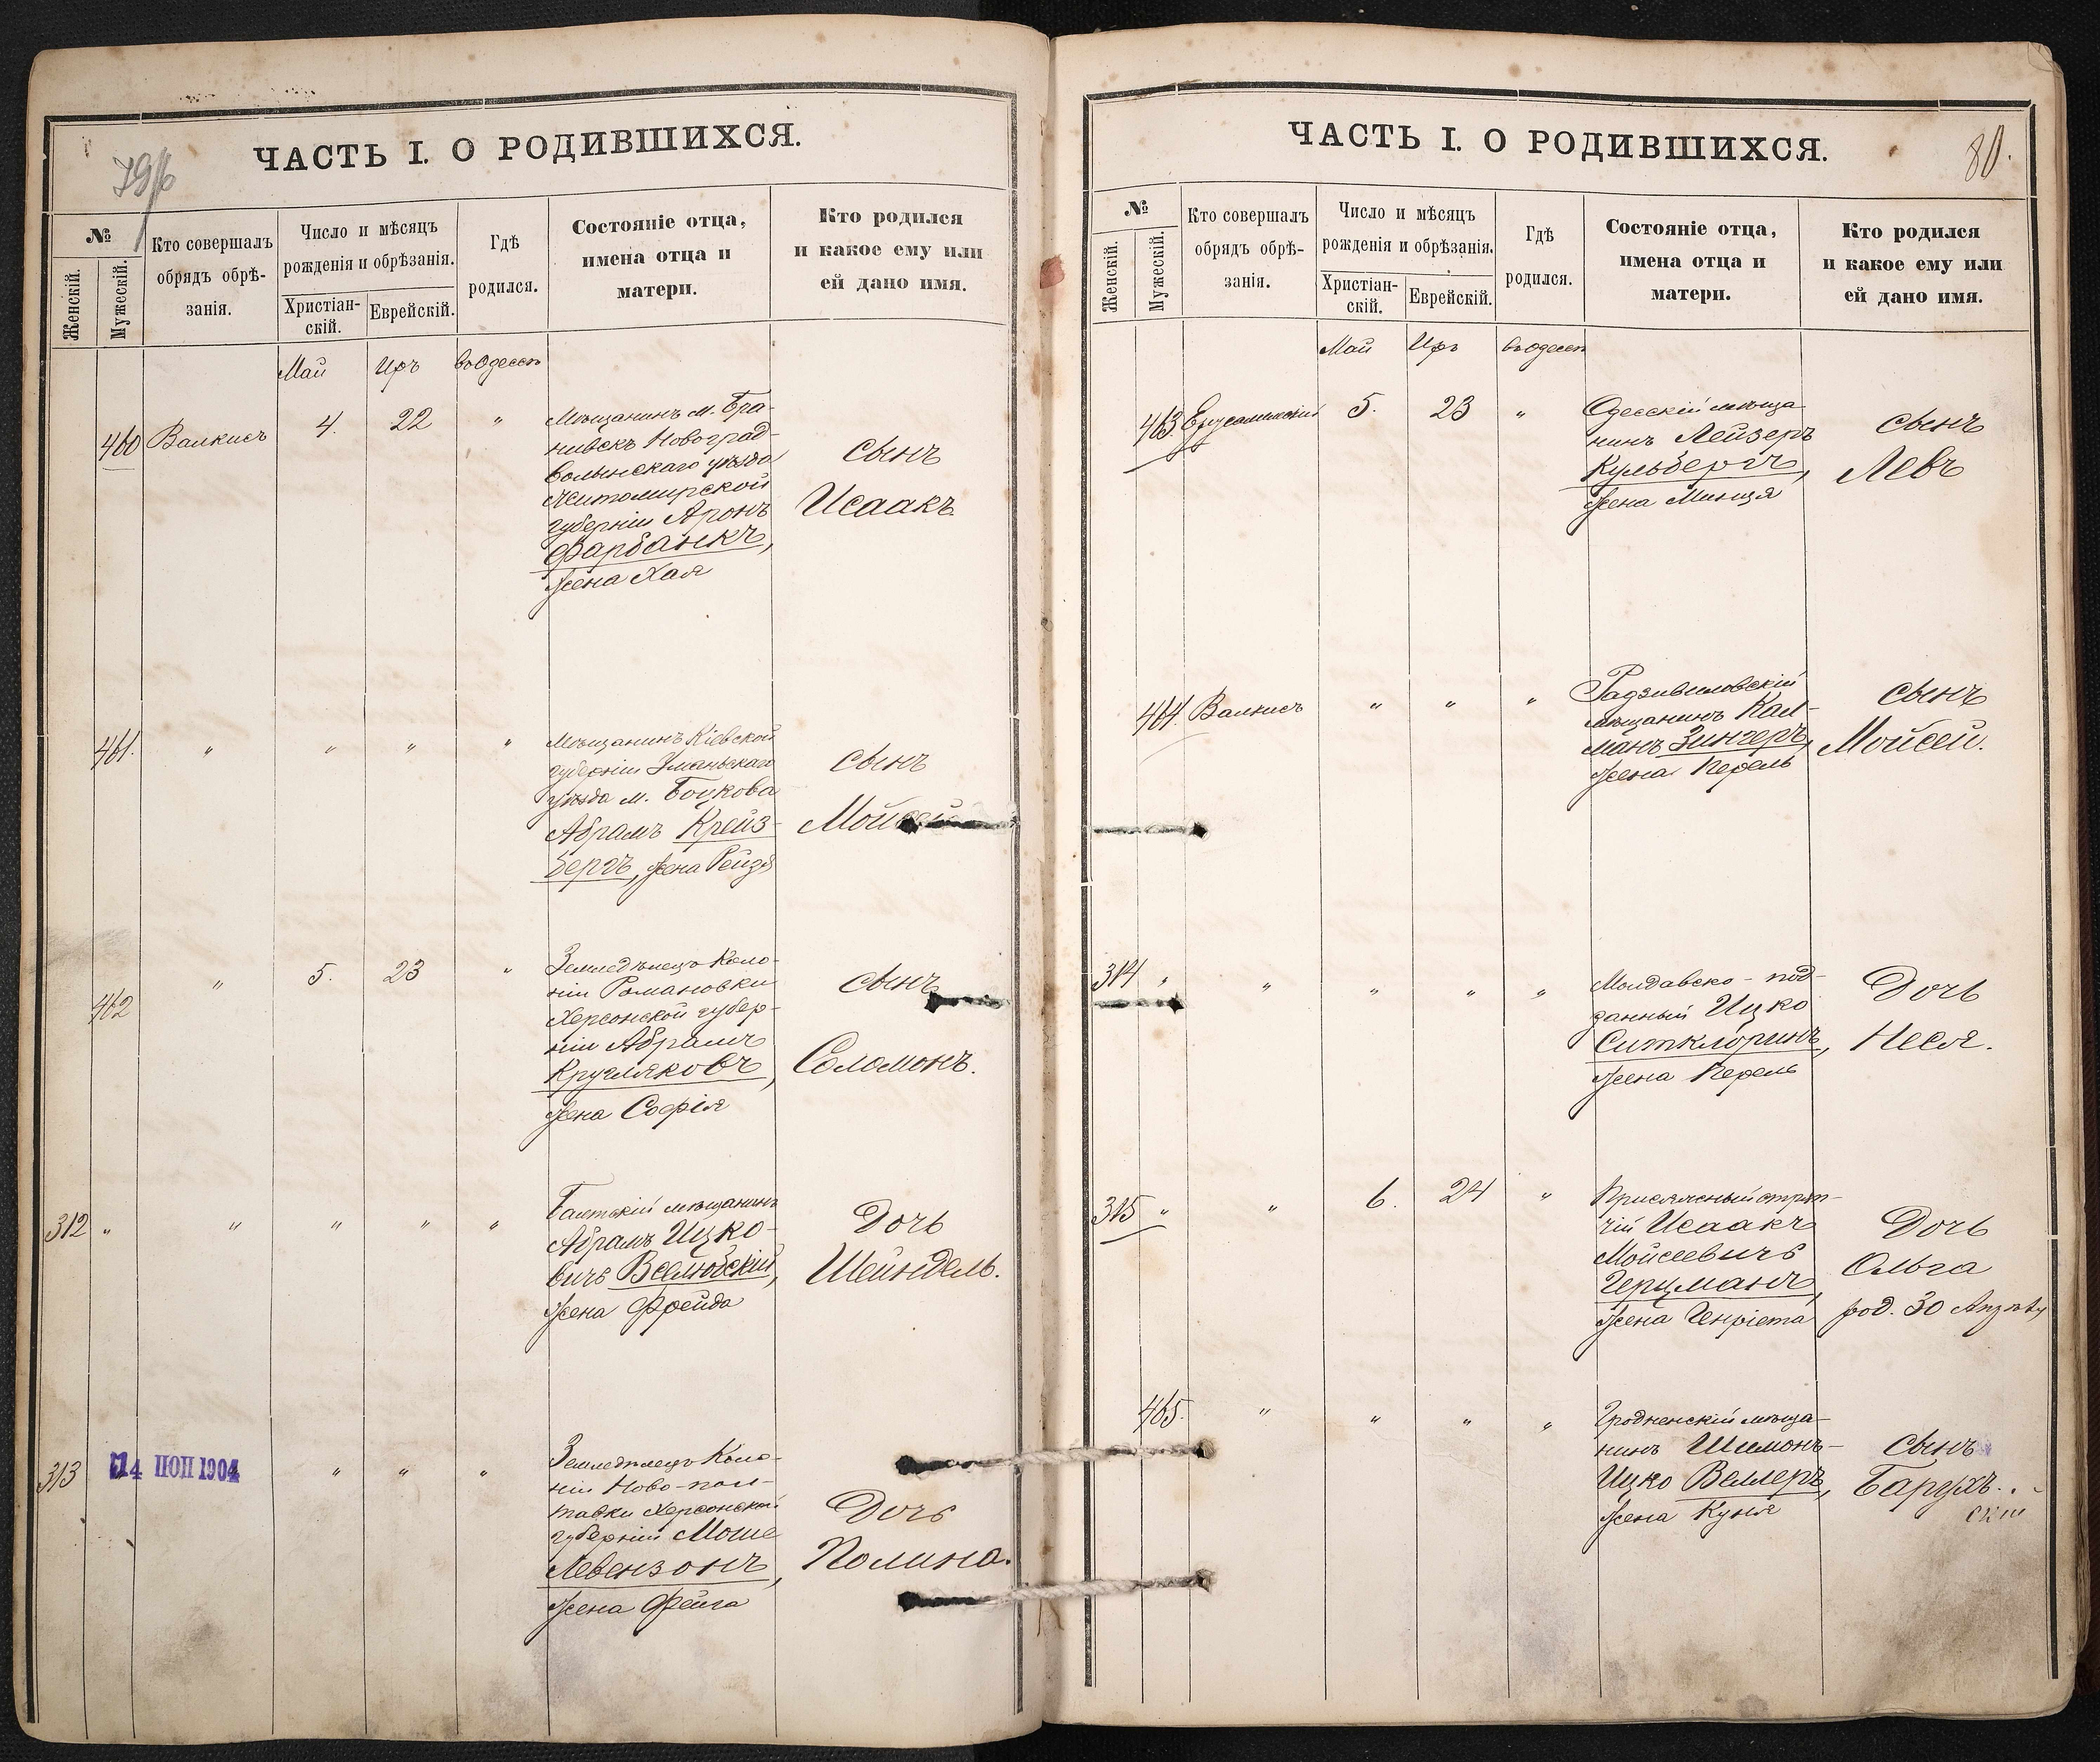 79/б
ЧАСТЬ I. О РОДИВШИХСЯ.
№
Женскій.
Мужескій.
Кто совершалъ
обрядъ обрѣ-
занія.
Число и мѣсяцъ
рожденія и обрѣзанія.
Христіан-
скій.
Еврейскій.
Гдѣ
родился.
Состояніе отца,
имена отца и
матери.
Кто родился
и какое ему или
ей дано имя.
Май Иръ въ Одессѣ
460 Валкисъ 4. 22 "
Мѣщанинъ м. Бра-
нивскъ Новоград-
волынскаго уѣзда
Житомирской
губерніи Аронъ
Фарбанкъ,
жена Хая
сынъ
Исаакъ
461. " " " "
Мѣщанинъ Кіевской
губерніи Уманьскаго
уѣзда м. Боцкова
Абрамъ Крейз-
бергъ, жена Рейзя
сынъ
Мойсей
462 " 5. 23 "
Земледѣлецъ Коло-
ніи Романовки
Херсонской губер-
ніи Абрамъ
Кругляковъ,
жена Софія
сынъ
Соломонъ.
312 " " " " "
Балтскій мѣщанинъ
Абрамъ Ицко-
вичъ Веслюбскій,
жена Фрейда
Дочь
Шейндель.
313 14 ПОП 1904 " " "
Земледѣлецъ Коло-
ніи Ново-пол-
тавки Херсонской
губерніи Моше
Левензонъ,
жена Фейга
Дочь
Полина.
80.
ЧАСТЬ I. О РОДИВШИХСЯ.
№
Женскій.
Мужескій.
Кто совершалъ
обрядъ обрѣ-
занія.
Число и мѣсяцъ
рожденія и обрѣзанія.
Христіан-
скій.
Еврейскій.
Гдѣ
родился.
Состояніе отца,
имена отца и
матери.
Кто родился
и какое ему или
ей дано имя.
Май Иръ въ Одессѣ
463. Ерусалимскій 5. 23 "
Одесскій мѣща
нинъ Лейзеръ
Кульбергъ,
жена Минця
сынъ
Левъ
464. Валкисъ " " "
Радзивиловскій
мѣщанинъ Кал-
манъ Зингеръ,
жена Перель
сынъ
Мойсей.
314 " " " " "
Молдавско-под-
данный Ицко
Ситклоринъ,
жена Перель
Дочь
Неся.
315 " " 6. 24 "
Присяжный стряп-
чій Исаакъ
Мойсеевичъ
Герцманъ,
жена Генріета
Дочь
Ольга
род. 30 Апрѣля
465. " " " "
Гродненскій мѣща-
нинъ Шимонъ-
Ицко Веллеръ,
жена Куня
сынъ
Барухъ.